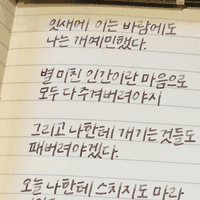 잇새에 이는 바람에도
나는 개예민했다.
별 미친 인간이란 마음으로
모두 다 주겨버려야시
그리고 나한테 개기는 것들도
패버려야겠다.
오늘 나한테 스치지도 마라